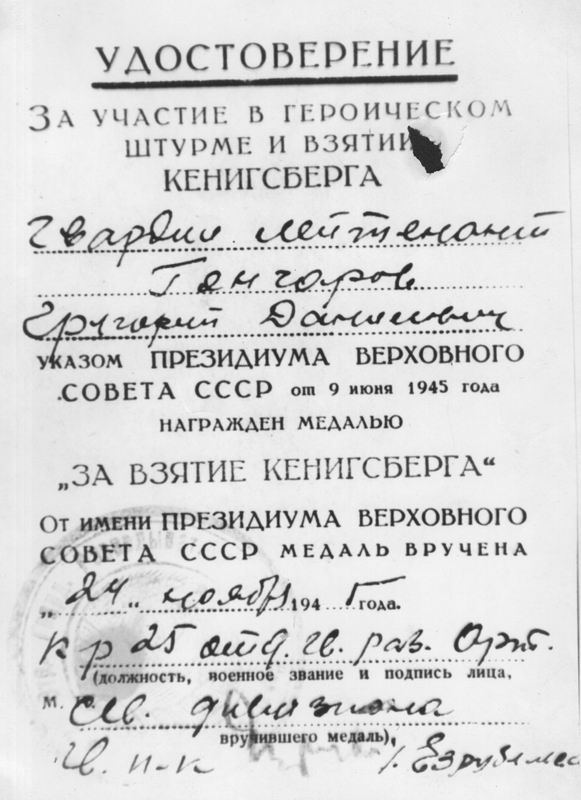 УДОСТОВЕРЕНИЕ
ЗА УЧАСТИЕ В ГЕРОИЧЕСКОМ
ШТУРМЕ И ВЗЯТИИ
КЕНИГСБЕРГА
Гвардии лейтенант
Гончаров
Григорий Данилович
УКАЗОМ ПРЕЗИДИУМА ВЕРХОВНОГО
СОВЕТА СССР от 9 июня 1945 года
НАГРАЖДЕН МЕДАЛЬЮ
„ЗА ВЗЯТИЕ КЕНИГСБЕРГА“
ОТ ИМЕНИ ПРЕЗИДИУМА ВЕРХОВНОГО
СОВЕТА СССР МЕДАЛЬ ВРУЧЕНА
„24" ноября 1945 года.
к-р 25 отд. гв. раз. Арт.
(должность, военное звание и подпись лица,
М. дивизиона
вручившего медаль)
Гв. п-к